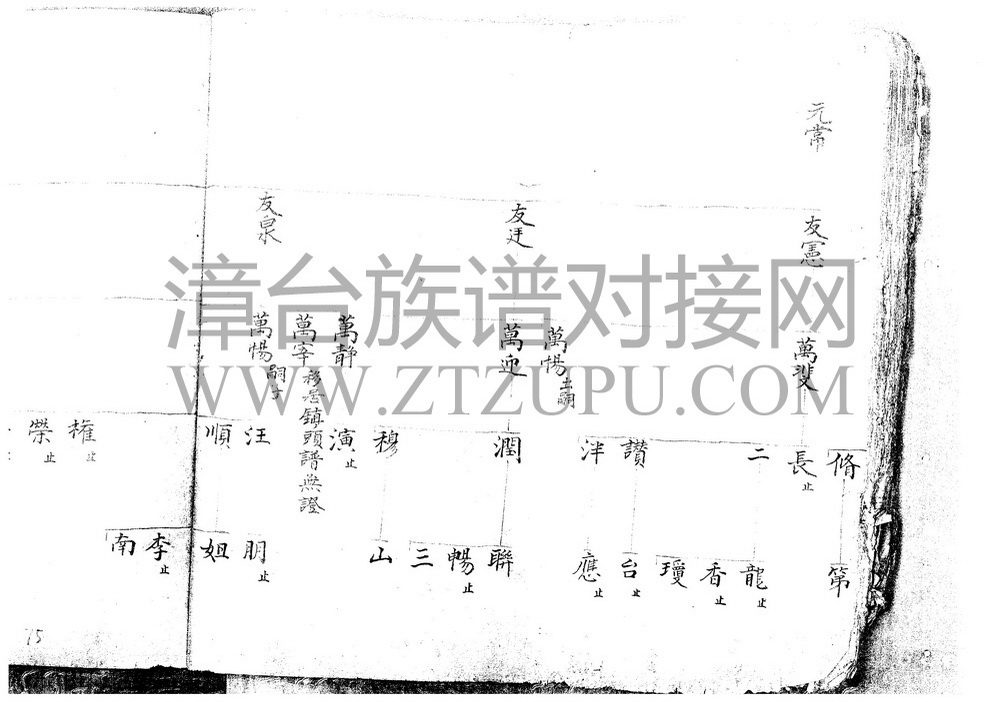 元常
友憲
友廷
友泉
萬斐
萬惕出嗣
萬迎
萬静
萬宰移居鎮頭譜無證
萬惕嗣子
脩
長止
二
讃
泮
潤
穆
演止
汪
順
權止
榮止
第
龍止
香止
瓊
台止
應止
聯
暢止
三
山
朋止
姐
李止
南
15
漳台族谱对接网
WWW.ZTZUPU.COM